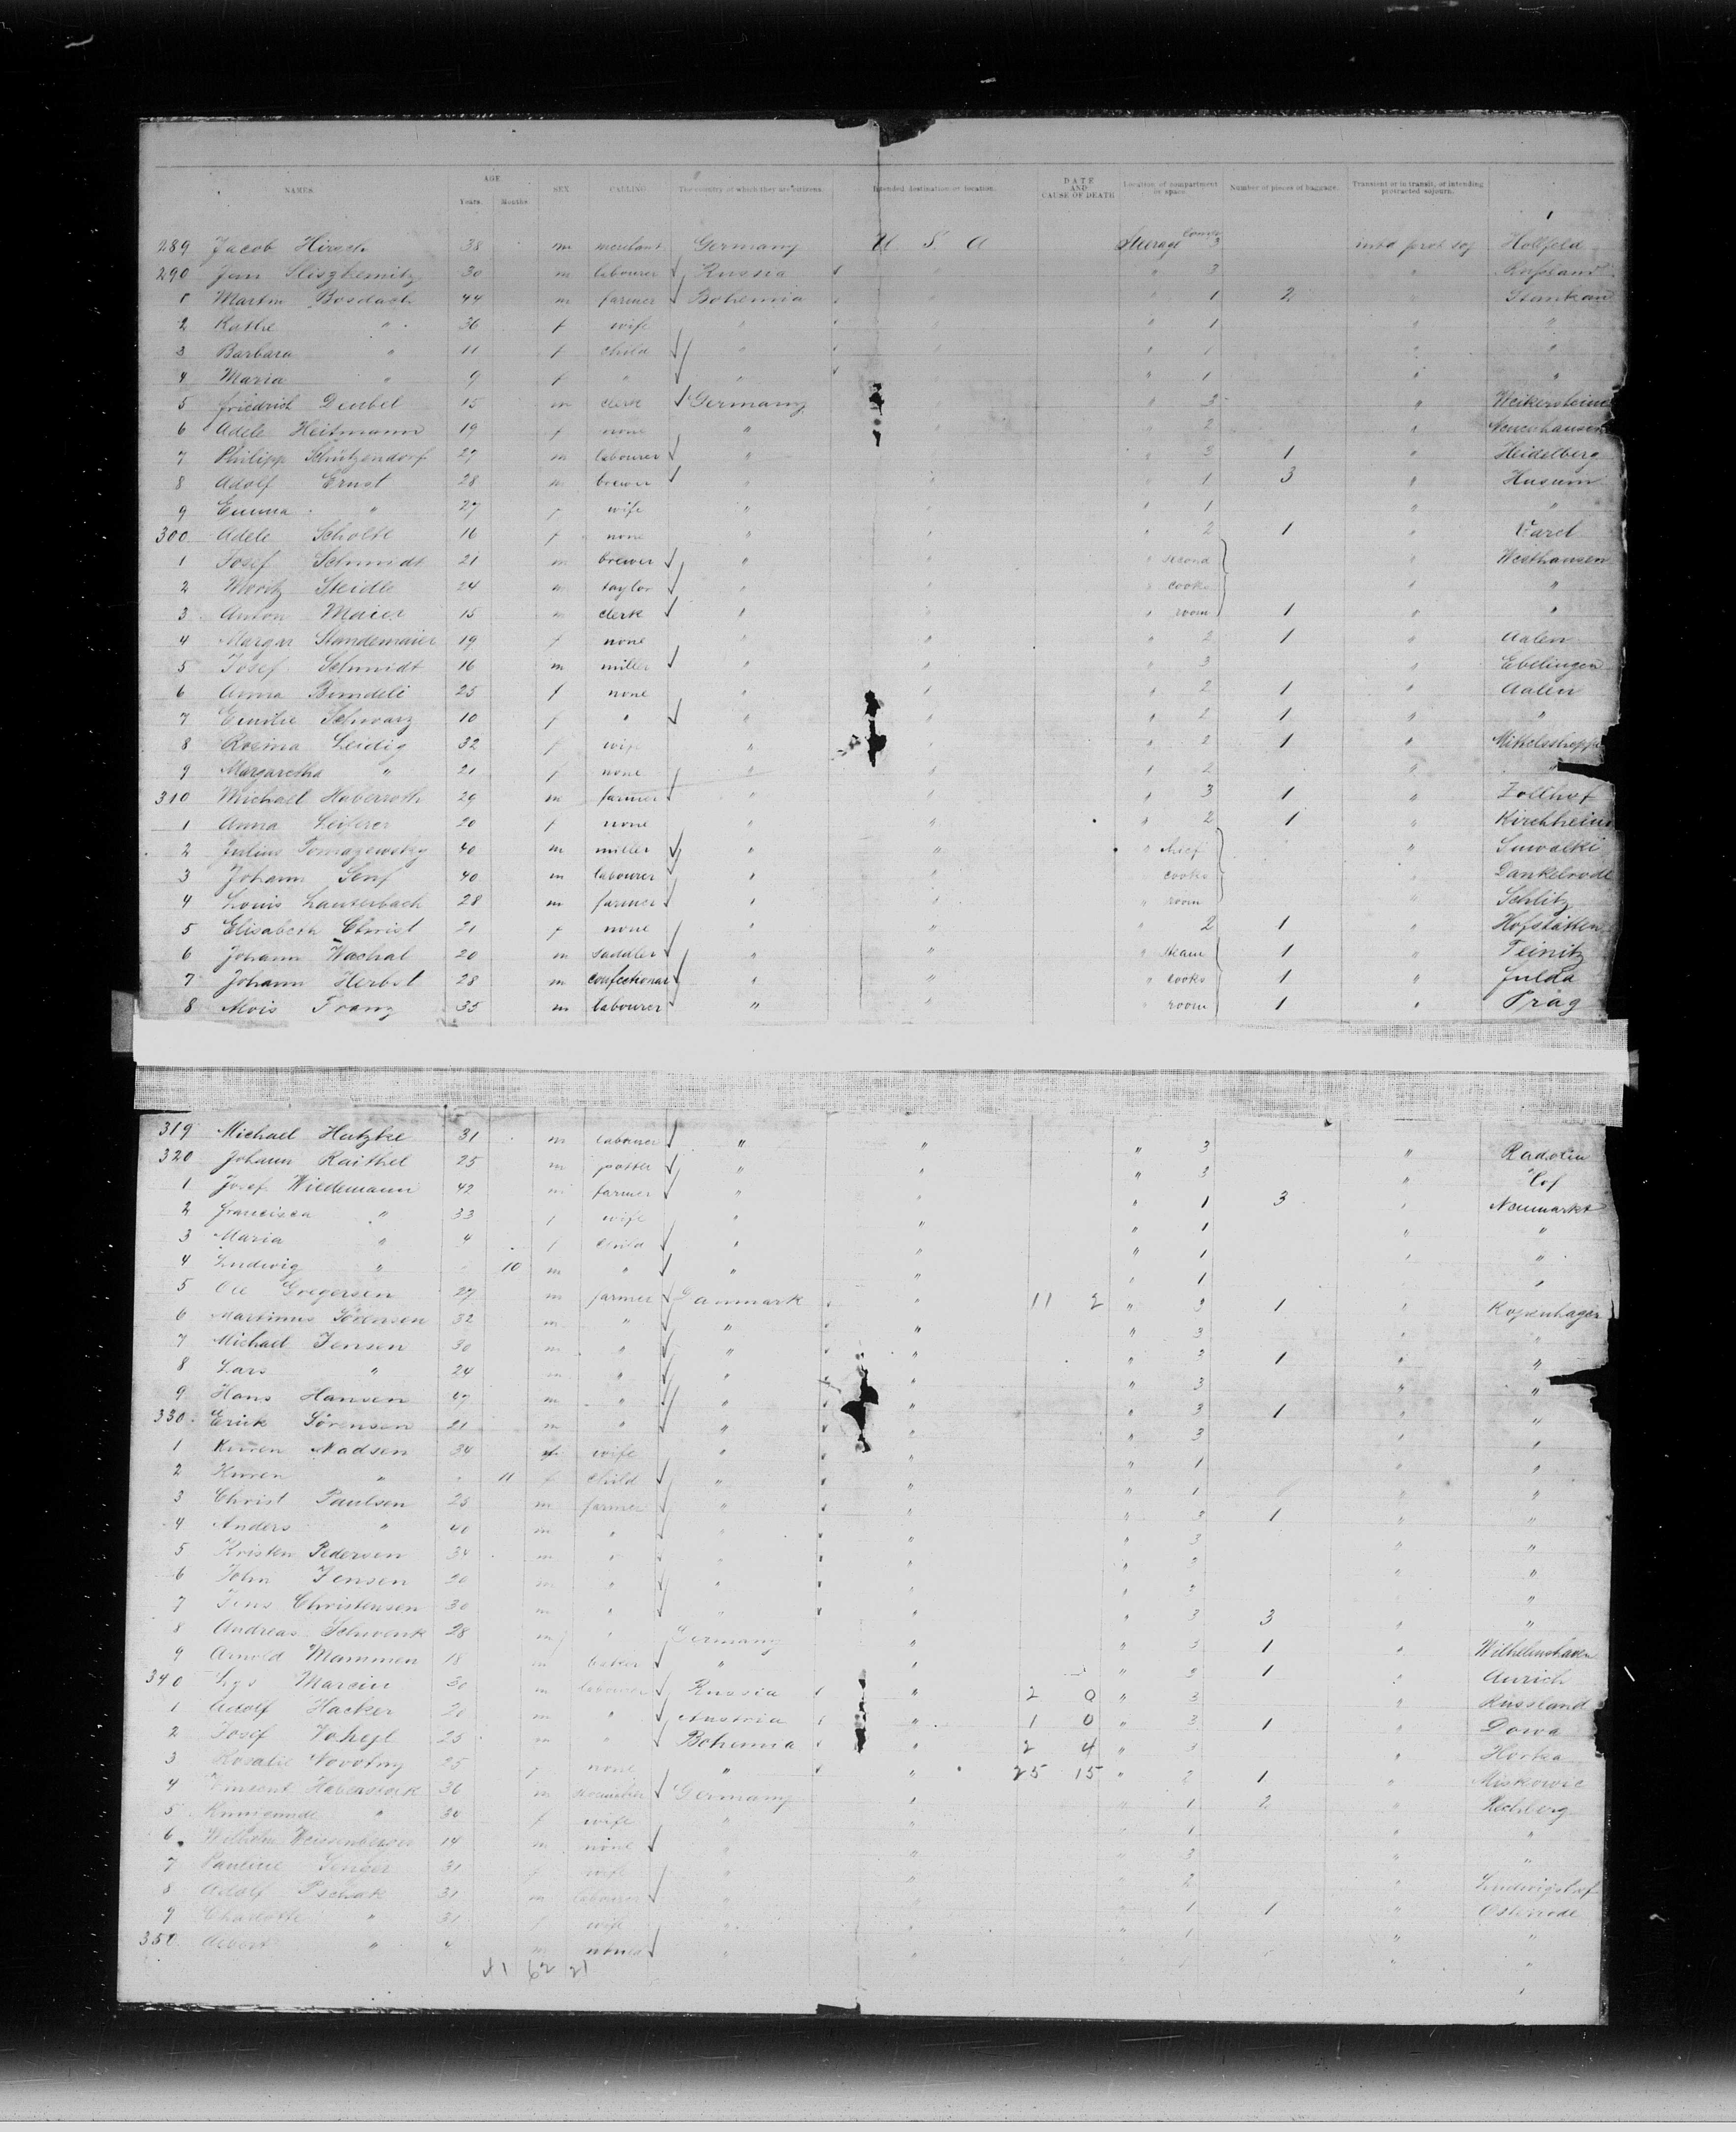 NAMES. AGE Years. Months. SEX CALLING. The country of which they are citizens. Intended destination or location. DATE AND CAUSE OF DEATH Location of compartment or space. Number of pieces of baggage. Transient or in transit, or intending protracted sojourn.
289 Jacob Hirsch 38 m merchant Germany U S A Steerage 3 Hollfeld
290 Jan 30 m labourer Russia " 3 "
1 Martin Bosdach 44 m farmer Bohemia " 1 2 " Stankau
2 Kathe " 36 f wife " " 1 " "
3 Barbara " 11 f child " " 1 " "
4 Maria " 9 f " " " 1 " "
5 Friedrich Deubel 15 m clerk Germany " 3 " Weikersheim
6 Adele Heitmann 19 f none " " 2 "
7 Philipp Schützendorf 27 m labourer " " 3 1 " Heidelberg
8 Adolf Ernst 28 m brewer " " 1 3 " Husum
9 Emma " 27 f wife " " 1 " "
300 Adele Scholte 16 f none " " 2 1 " Varel
1 Josef Schmidt 21 m brewer " " second " Westhausen
2 Moritz Steidle 24 m taylor " " cooks " "
3 Anton Maier 15 m clerk " " room 1 " "
4 Margar Standemaier 19 f none " " 2 1 " Aalen
5 Josef Schmidt 16 m miller " " 3 " Ebelingen
6 Anna Bimdeli 25 f none " " 2 1 " Aalen
7 Emilie Schwarz 10 f " " " 2 1 " "
8 Rosina Leidig 32 f wife " " 2 1 "
9 Margaretha " 21 f none " " 2 " "
310 Michael Haberroth 29 m farmer " " 3 1 " Zollhof
1 Anna Leiferer 20 f none " " 2 1 " Kirchheim
2 Julius Tomazewsky 40 m miller " " " chief " Suwalki
3 Johann Senf 40 m labourer " " cooks " Dankelrode
4 Louis Lauterbach 28 m farmer " " " room " Schlitz
5 Elisabeth Christ 21 f none " " " 2 1 " Hofstätten
6 Johann Wachal 20 m saddler " " " steam 1 " Teinitz
7 Johann Herbst 28 m confectionar " " " cooks 1 " Fulda
8 Alois Franz 35 m labourer " " " room 1 " Prag
319 Michael Hatzke 31 m labourer " " " 3 " Radolin
320 Johann Raithel 25 m potter " " " 3 " Hof
1 Josef Wiedemann 42 m farmer " " " 1 3 " Neumarkt
2 Francisca " 33 f wife " " " 1 " "
3 Maria " 4 f child " " " 1 " "
4 Ludwig " 10 m " " " " 1 "
5 Ole Gregersen 27 m farmer Danmark " 11 2 " 3 1 " Kopenhagen
6 Martinus 32 m " " " " 3 " "
7 Michael Jensen 30 m " " " " 2 1 " "
8 Lars " 24 m " " " " 3 " "
9 Hans Hansen 47 m " " " " 3 1 " "
330 Erick Sörensen 21 m " " " " 3 " "
1 Karen Madsen 34 f wife " " " 1 " "
2 Karen " 11 f child " " " 1 " "
3 Christ Paulsen 25 m farmer " " " 3 1 " "
4 Anders " 40 m " " " " 3 " "
5 Kristen Pedersen 34 m " " " " 3 " "
6 John Jensen 20 m " " " " "
7 Jens Christensen 30 m " " " " 3 3 " "
8 Andreas Schwenk 28 m " Germany " " 3 1 " Wilhelmshaven
9 Arnold Mammen 18 m baker " " " 3 1 " Aurich
340 Marcin 30 m labourer Russia " 2 0 " 3 " Russland
1 Adolf Hacker 20 m " Austria " 1 0 " 3 1 "
2 Josef 25 m " Bohemia " 2 4 " 3 "
3 Rosalie Novotny 25 f none " " 25 15 " 2 1 " Miskowic
4 Vincent 36 m Germany " " 1 2 " Rechberg
5 Kunigunde " 34 f wife " " " 1 " "
6 Wilhelm Weissenberger 14 m none " " " 3 " "
7 Pauline 31 f wife " " " 2 "
8 Adolf 31 m labourer " " " 1 1 " Osterode
9 Charlotte " 31 f wife " " " 1 " "
350 Albert " 4 m " " " "